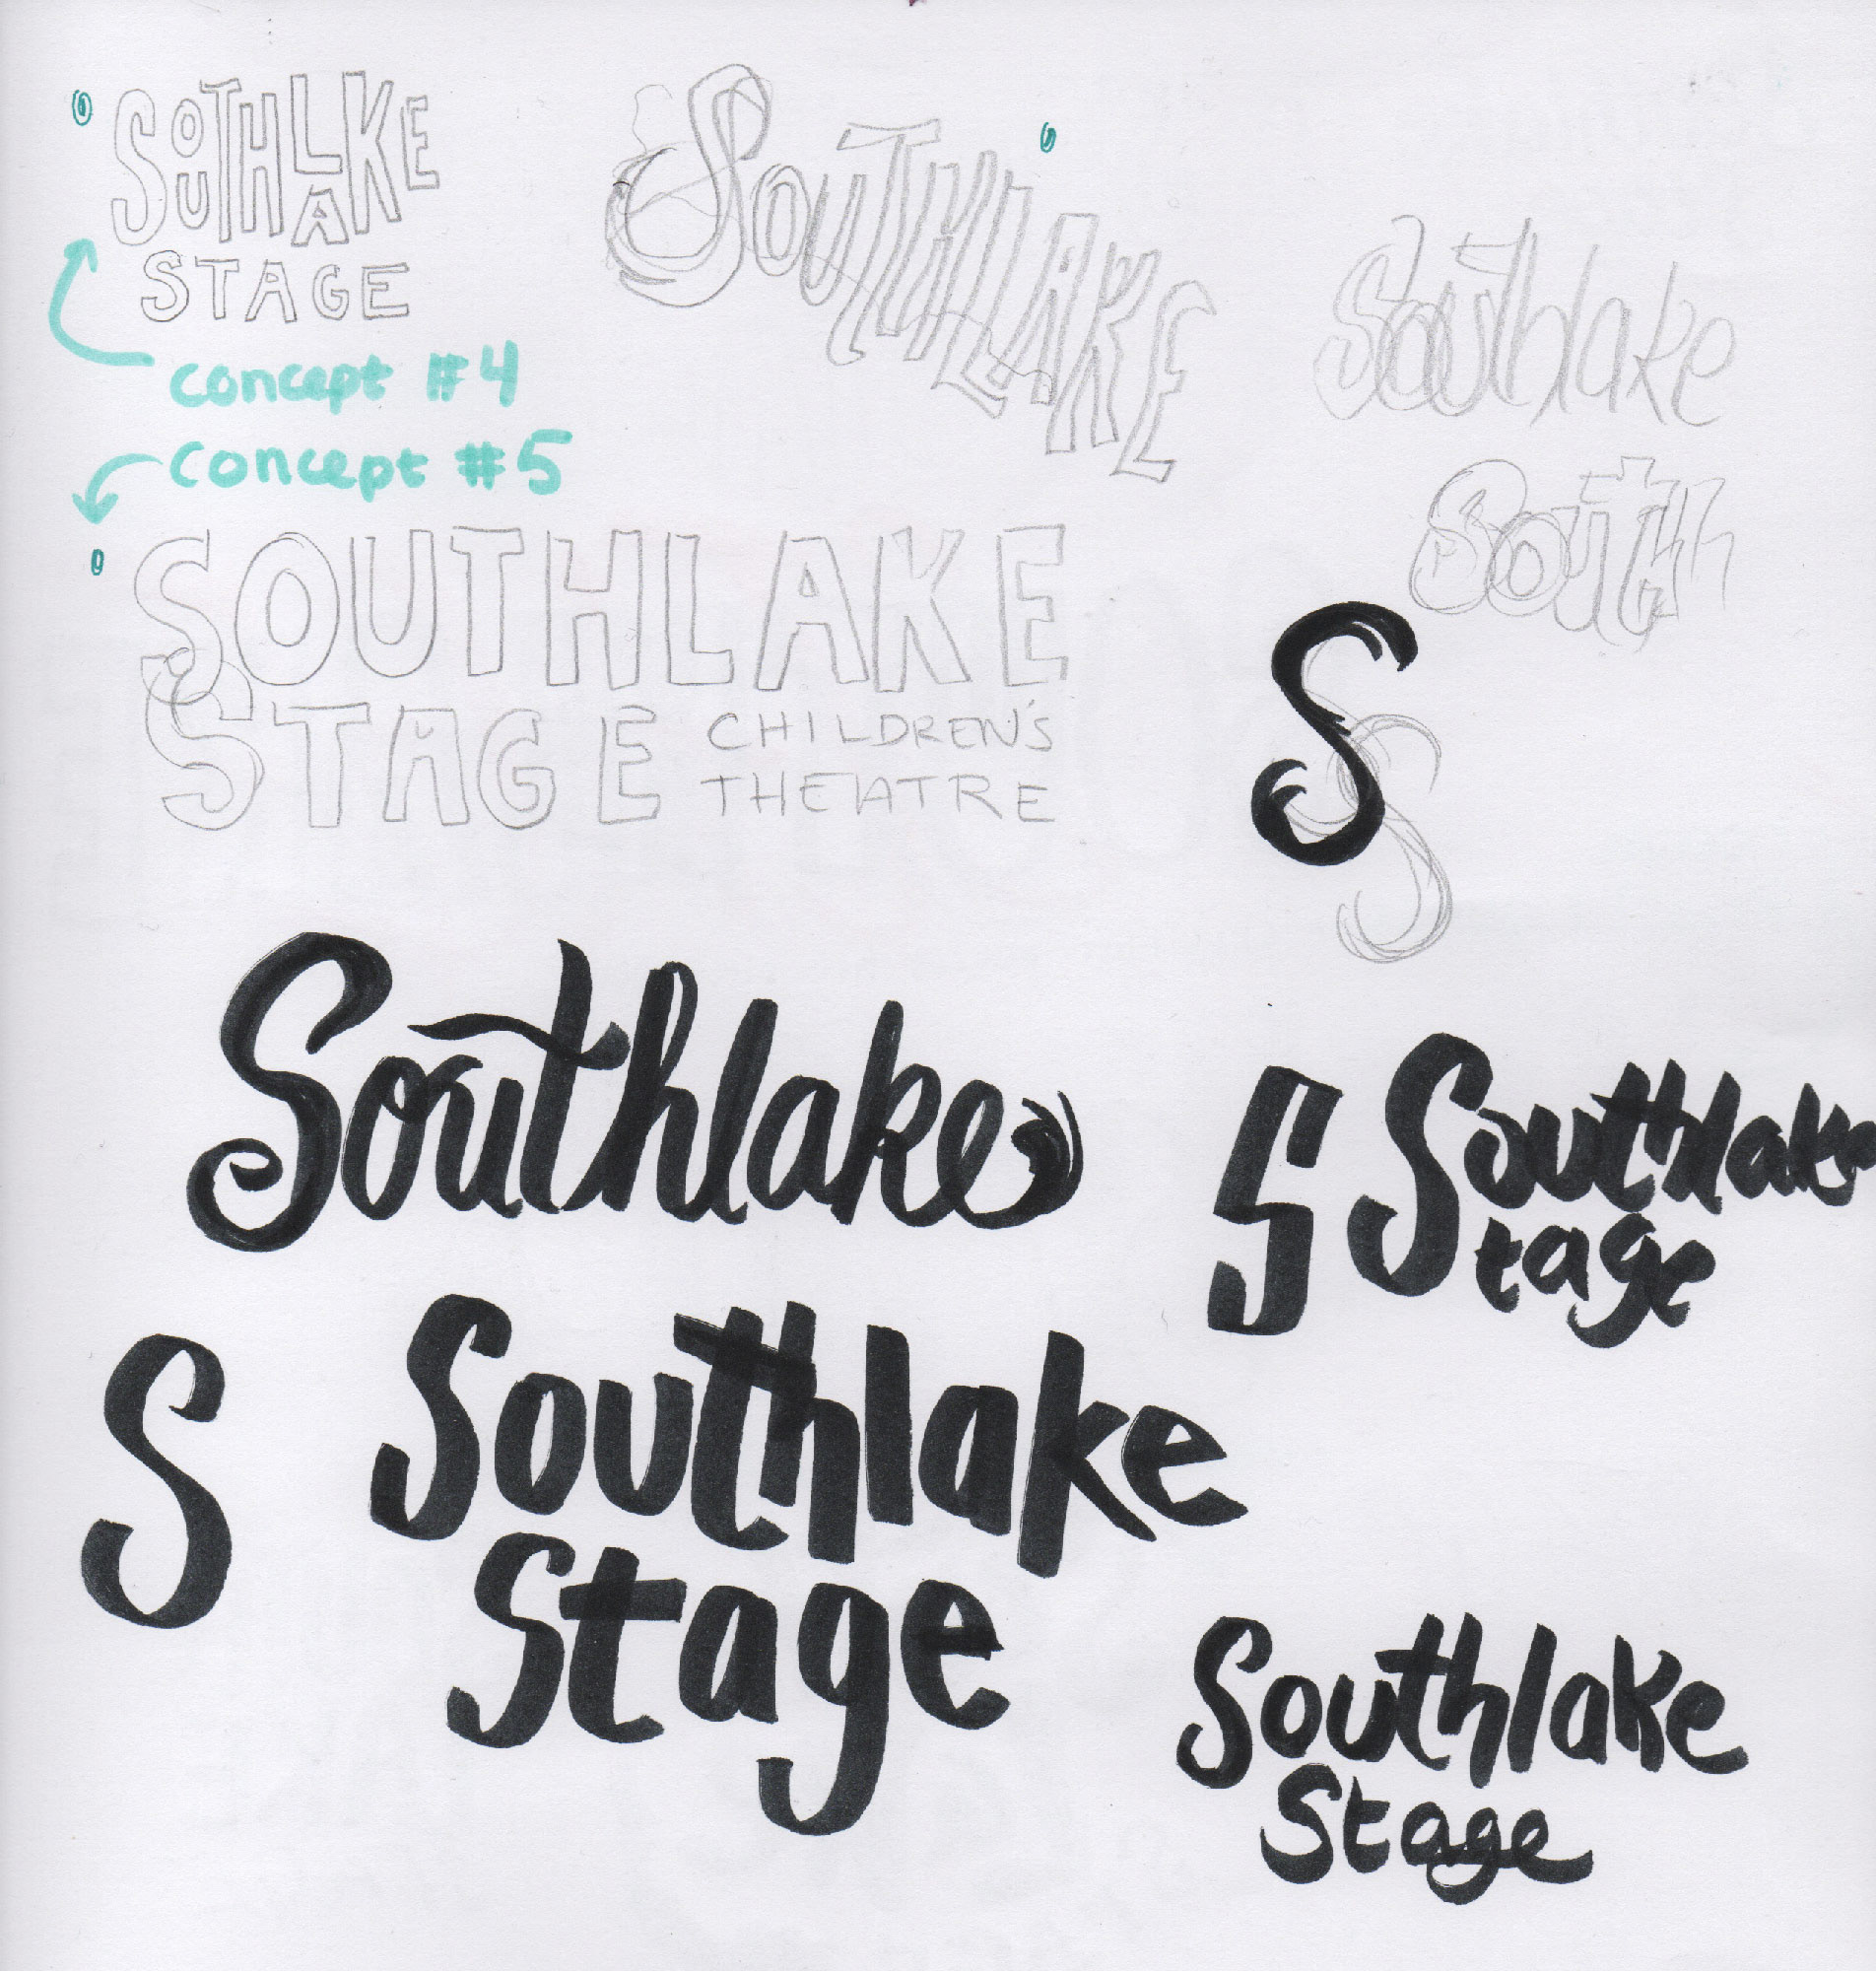 SOUTHLAKE
STAGE
concept #4
concept #5
SOUTHLAKE
Southlake
South
SOUTHLAKE
STAGE CHILDREN'S
THEATRE
S
S
Southlake
S
Southlake
tage
S
Southlake
Stage
Southlake
Stage